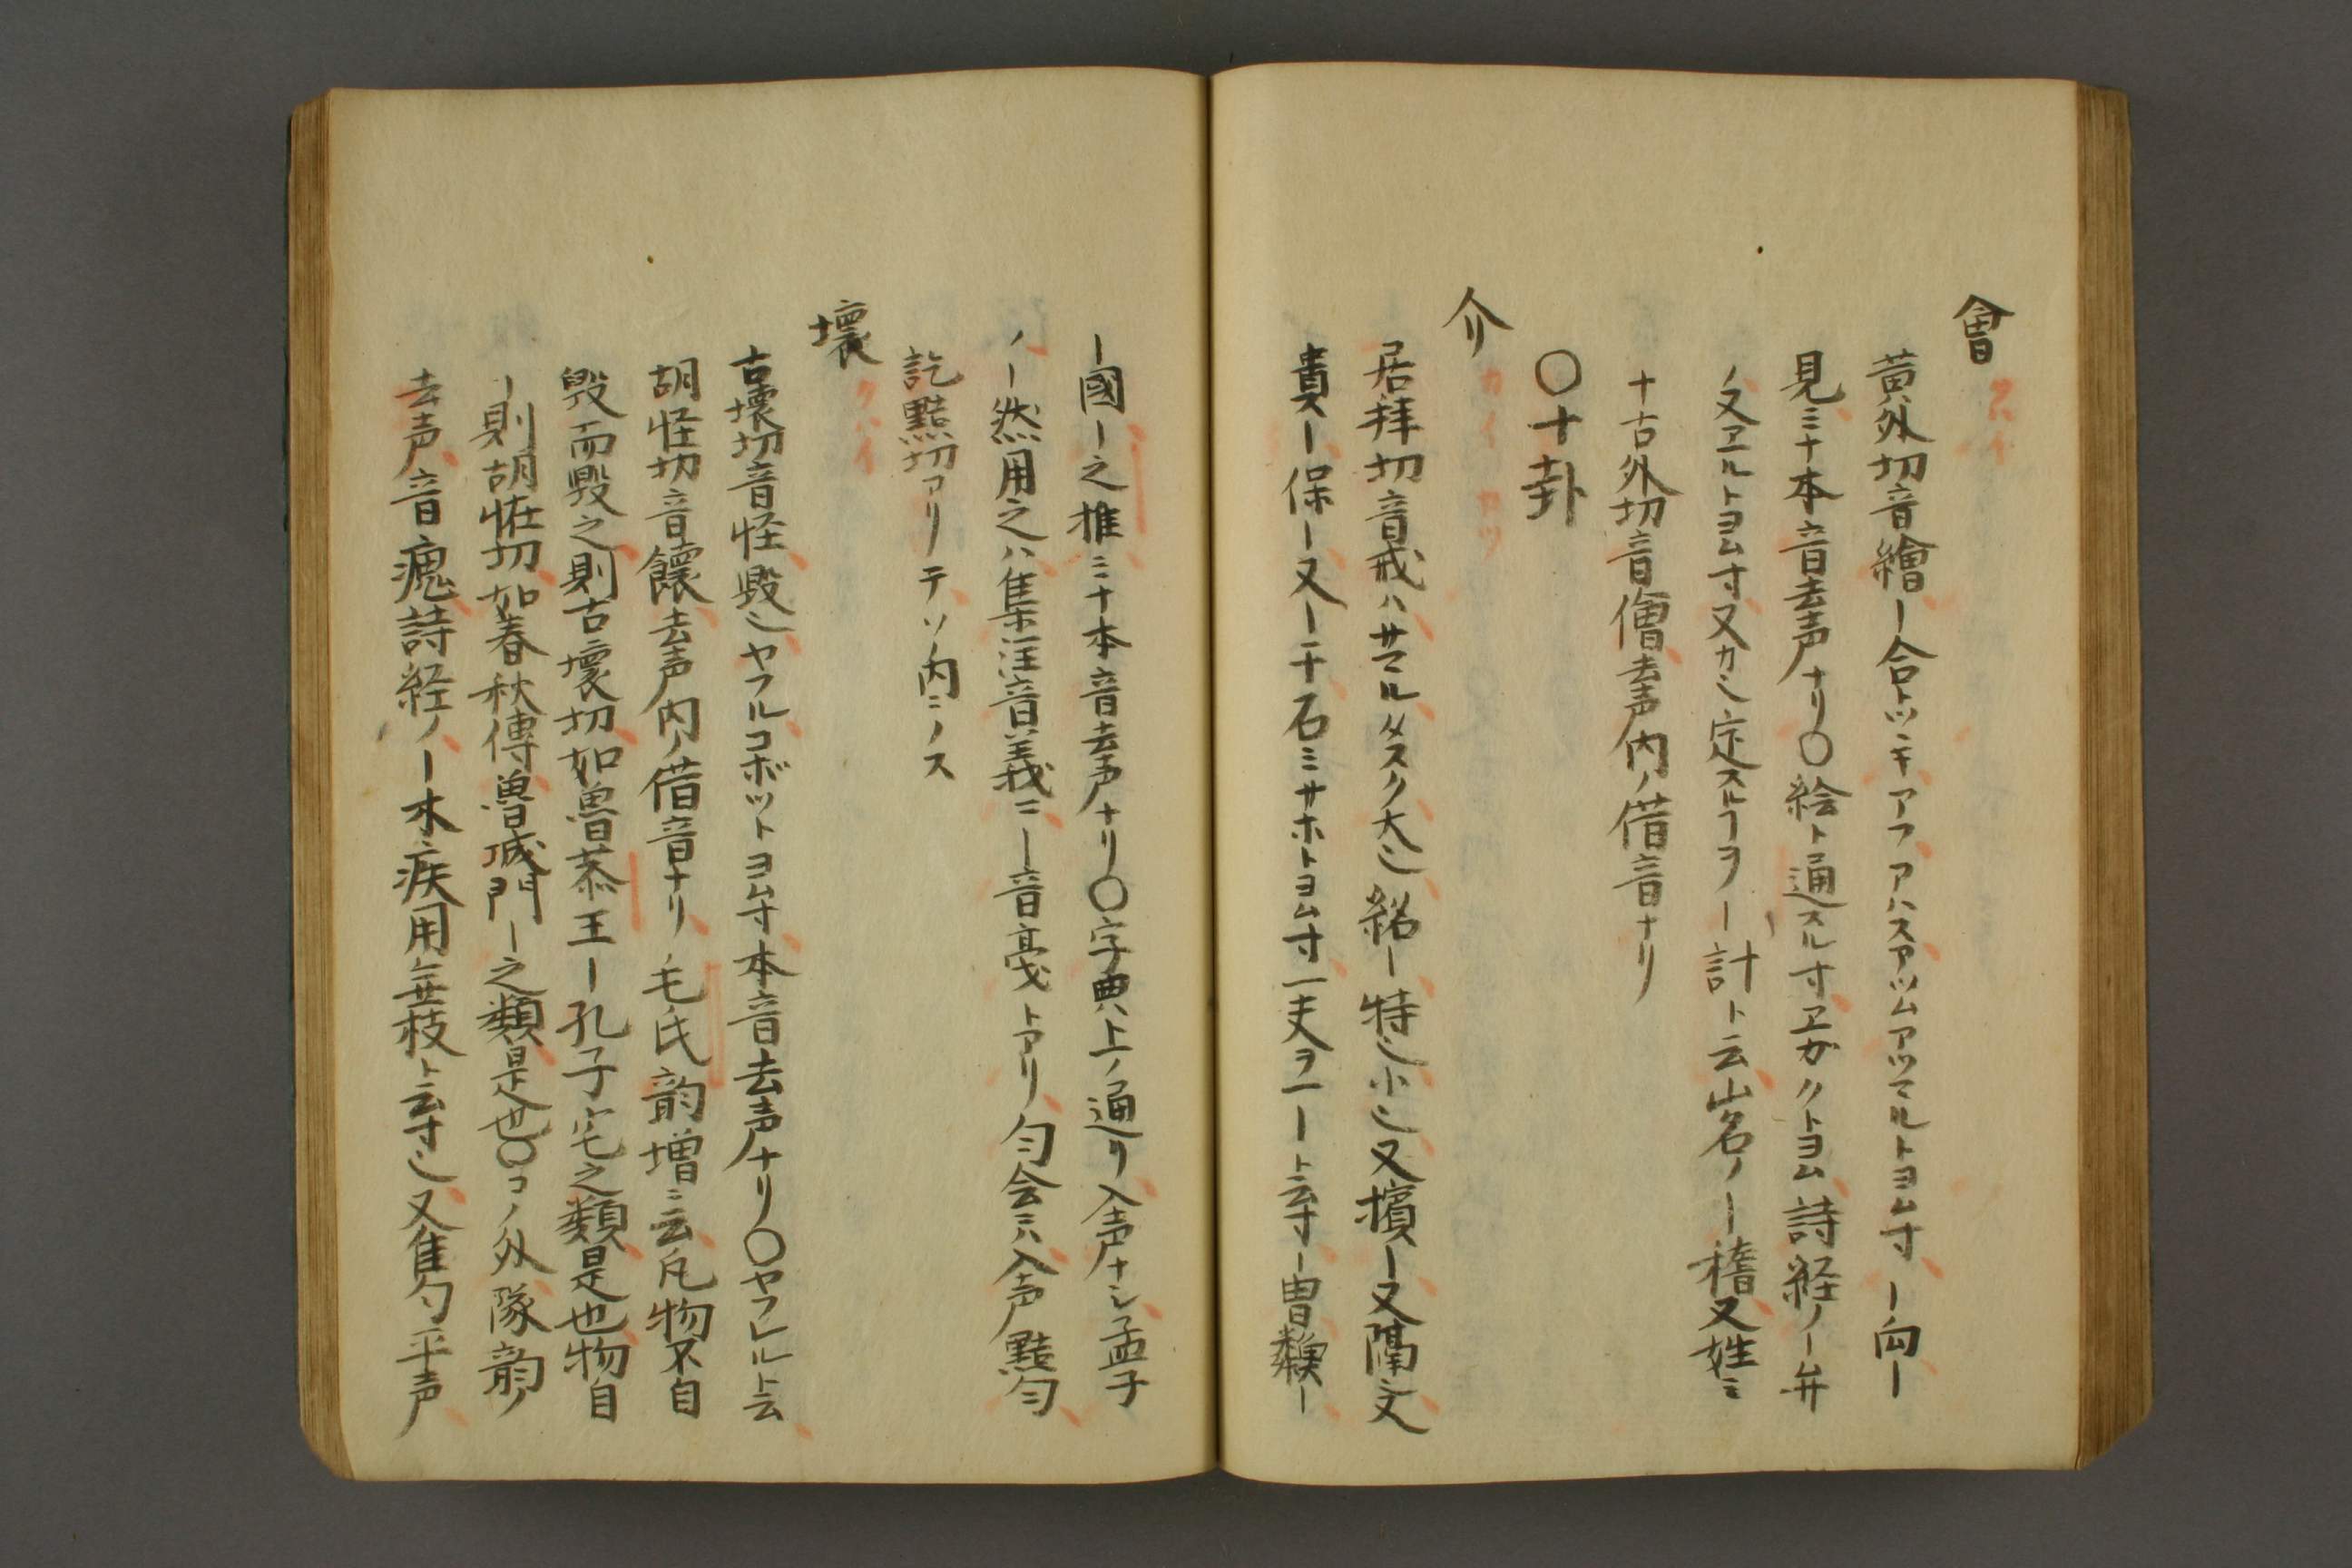 會
クハイ
黄外切音繪ー合トツキアフアハスアツムアツマルトヨム寸ー向ー
見ミナ本音去声ナリ〇絵ト通スル寸ヱガクトヨム詩経ノー弁
ノ又ヱルトヨム寸又カ定スルヿヲー計ト云山名ノー稽又姓ミ
十古外切音儈去声内ノ借音ナリ
〇十卦
介
カイ カツ
居拝切音戒ハサマルタスク大紹ー特小又擯ー又隔之又
貴ー保ー又ー十石ミサホトヨム寸一夫ヲ一ート云寸ー冑類ー
ー國ー之推ミナ本音去声ナリ〇字典上ノ通リ入声ナシ孟子
ノー然用之ハ集注音義ニー音戞トアリ匀会ニハ入声黠匀
訖黠切アリテソノ内ニノス
壞
クハイ
古壞切音怪毀ヤフルコボツトヨム寸本音去声ナリ〇ヤフレルト云
胡怪切音懷去声内ノ借音ナリノ毛氏韵増ニ云凡物不自
毀而毀之則古壞切如魯恭王ー孔子宅之類是也物自
ー則胡怪切如春秋傳魯城門ー之類是也〇コノ外隊韵ノ
去声音瘣詩経ノー木疾用無枝ト云寸又隹匀平声